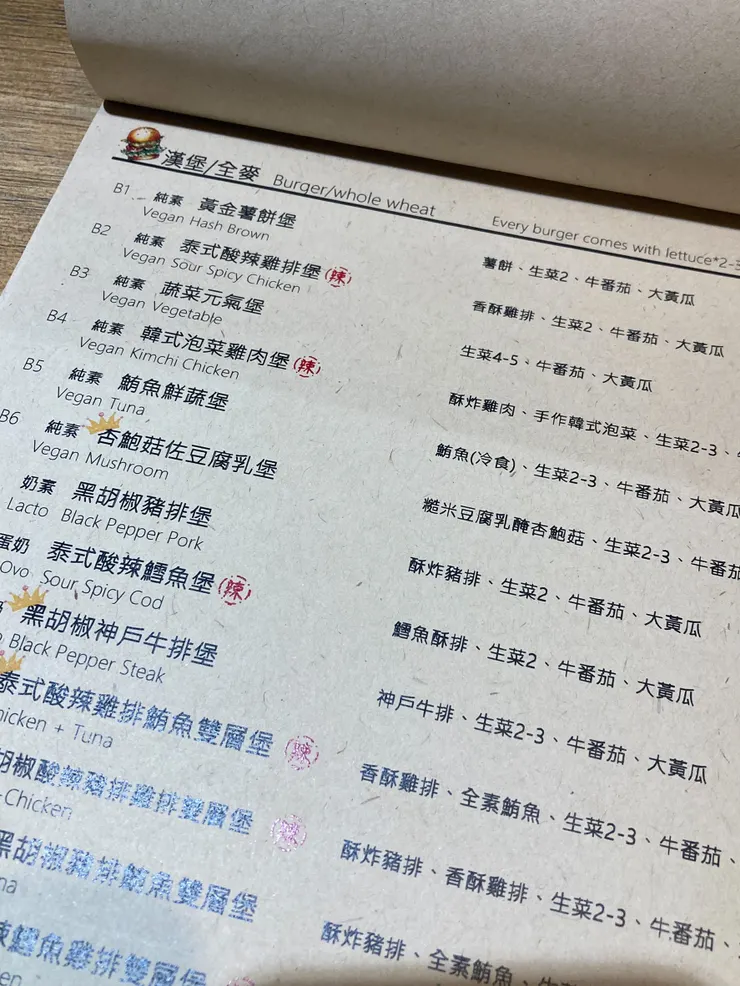 漢堡/全麥 Burger/whole wheat
Every burger comes with lettuce*2-3
B1 純素 黃金薯餅堡
Vegan Hash Brown
薯餅、生菜2、牛番茄、大黃瓜
B2 純素 泰式酸辣雞排堡 辣
Vegan Sour Spicy Chicken
香酥雞排、生菜2、牛番茄、大黃瓜
B3 純素 蔬菜元氣堡
Vegan Vegetable
生菜4-5、牛番茄、大黃瓜
B4 純素 韓式泡菜雞肉堡 辣
Vegan Kimchi Chicken
酥炸雞肉、手作韓式泡菜、生菜2-3、
B5 純素 鮪魚鮮蔬堡
Vegan Tuna
鮪魚(冷食)、生菜2-3、牛番茄、大黃瓜
B6 純素 杏鮑菇佐豆腐乳堡
Vegan Mushroom
糙米豆腐乳醃杏鮑菇、生菜2-3、牛番茄
奶素 黑胡椒豬排堡
Lacto Black Pepper Pork
酥炸豬排、生菜2、牛番茄、大黃瓜
蛋奶 泰式酸辣鱈魚堡 辣
Ovo Sour Spicy Cod
鱈魚酥排、生菜2、牛番茄、大黃瓜
黑胡椒神戶牛排堡
Black Pepper Steak
神戶牛排、生菜2-3、牛番茄、大黃瓜
泰式酸辣雞排鮪魚雙層堡 辣
hicken + Tuna
香酥雞排、全素鮪魚、生菜2-3、牛番茄、
胡椒酸辣豬排雞排雙層堡 辣
-Chicken
酥炸豬排、香酥雞排、生菜2-3、牛番茄、
黑胡椒豬排鮪魚雙層堡
na
酥炸豬排、全素鮪魚、生菜
辣鱈魚雞排雙層堡
en